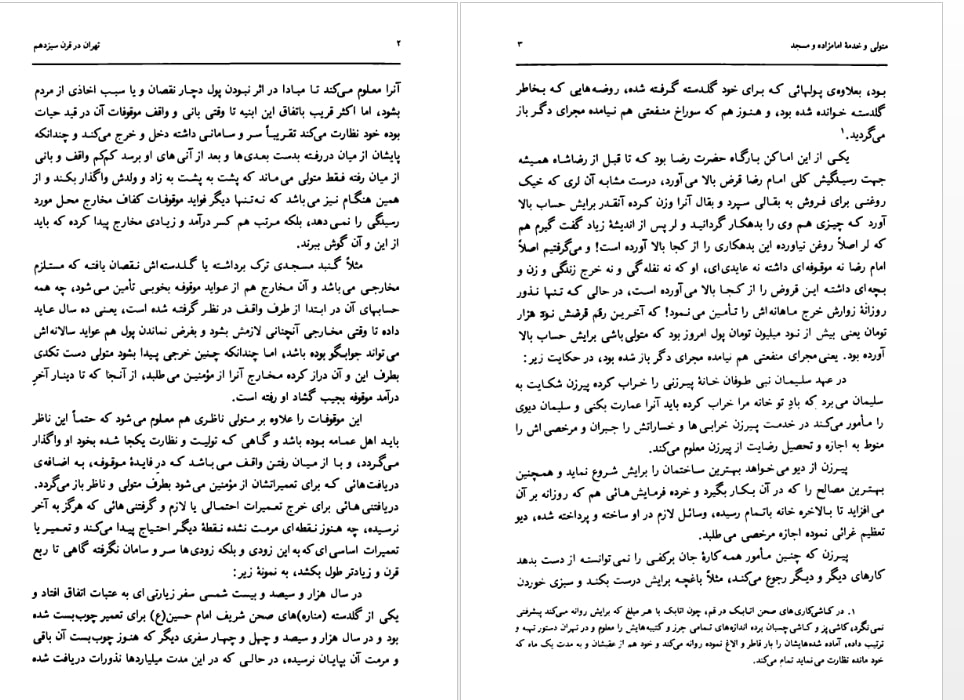 ۲ تهران در قرن سیزدهم
آنرا معلوم می‌کند تـا مبادا در اثر نبودن پول دچار نقصان و یا سبب اخاذی از مردم
بشود، اما اکثر قریب باتفاق این ابنیه تا وقتی بانی و واقف موقوفات آن در قید حیات
بوده خود نظارت می‌کند تقریباً سر و سامانی داشته دخل و خرج می‌کند و چندانکه
پایشان از میان دررفته بدست بعدی‌ها و بعد از آنی‌های او برسد کم‌کم واقف و بانی
از میان رفته فقط متولی می‌ماند که پشت به پشت به زاد و ولدش واگذار بکند و از
همین هنگام نیز می‌باشد که نه‌تنها دیگر فواید موقوفات کفاف مخارج محل مورد
رسیدگی را نمی‌دهد، بلکه مرتب هم کسر درآمد و زیادی مخارج پیدا کرده که باید
از این و آن گوش ببرند.
مثلاً گنبد مسجدی ترک برداشته یا گلدسته‌اش نقصان یافته که مستلزم
مخارجی می‌باشد و آن مخارج هم از عواید موقوفه بخوبی تأمین می‌شود، چه همه
حسابهای آن در ابتدا از طرف واقف در نظر گرفته شده است، یعنی ده سال عاید
داده تا وقتی مخارجی آنچنانی لازمش بشود و بفرض نماندن پول هم عواید سالانه‌اش
می‌تواند جوابگو بوده باشد، اما چندانکه چنین خرجی پیدا بشود متولی دست تکدی
بطرف این و آن دراز کرده مخارج آنرا از مؤمنین می‌طلبد، از آنجا که تا دینار آخرِ
درآمد موقوفه بجیب گشاد او رفته است.
این موقوفات را علاوه بر متولی ناظری هم معلوم می‌شود که حتماً این ناظر
باید اهل عمامه بوده باشد و گاهی که تولیت و نظارت یکجا شده بخود او واگذار
می‌گردد، و با از میان رفتن واقف می‌باشد که درِ فایدهٔ موقوفه، به اضافه‌ی
دریافت‌هائی که برای تعمیراتشان از مؤمنین می‌شود بطرف متولی و ناظر باز می‌گردد.
دریافتنی هائی برای خرج تعمیرات احتمالی یا لازم و گرفتنی هائی که هرگز به آخر
نرسیده، چه هنوز نقطه‌ای مرمت نشده نقطهٔ دیگر احتیاج پیدا می‌کند و تعمیر یا
تعمیرات اساسی ای که به این زودی و بلکه زودی‌ها سر و سامان نگرفته گاهی تا ربع
قرن و زیادتر طول بکشد، به نمونهٔ زیر:
در سال هزار و سیصد و بیست شمسی سفر زیارتی ای به عتبات اتفاق افتاد و
یکی از گلدسته (مناره)های صحن شریف امام حسین(ع) برای تعمیر چوب‌بست شده
بود و در سال هزار و سیصد و چهل و چهار سفری دیگر که هنوز چوب‌بست آن باقی
و مرمت آن بپایان نرسیده، در حالی که در این مدت میلیاردها نذورات دریافت شده
متولی و خدمهٔ امامزاده و مسجد ۳
بود، بعلاوه‌ی پولهائی که برای خود گلدسته گرفته شده، روضه‌هایی که بخاطر
گلدسته خوانده شده بود، و هنوز هم که سوراخ منفعتی هم نیامده مجرای دگر باز
می‌گردید.۱
یکی از این اماکن بارگاه حضرت رضا بود که تا قبل از رضاشاه همیشه
جهت رسیدگیش کلی امام رضا قرض بالا می‌آورد، درست مشابه آن لری که خیک
روغنی برای فروش به بقالی سپرد و بقال آنرا وزن کرده آنقدر برایش حساب بالا
آورد که چیزی هم وی را بدهکار گردانید و لر پس از اندیشهٔ زیاد گفت گیرم هم
که لر اصلاً روغن نیاورده این بدهکاری را از کجا بالا آورده است! و می‌گرفتیم اصلاً
امام رضا نه موقوفه‌ای داشته نه عایدی‌ای، او که نه نفله‌گی و نه خرج زندگی و زن و
بچه‌ای داشته این قروض را از کجا بالا می‌آورده است، در حالی که تنها نذور
روزانهٔ زوارش خرج ماهانه‌اش را تأمین می‌نمود! که آخرین رقم قرضش نود هزار
تومان یعنی بیش از نود میلیون تومان پول امروز بود که متولی‌باشی برایش حساب بالا
آورده بود. یعنی مجرای منفعتی هم نیامده مجرای دگر باز شده بود، در حکایت زیر:
در عهد سلیمان نبی طوفان خانهٔ پیرزنی را خراب کرده پیرزن شکایت به
سلیمان می‌برد که بادِ تو خانه مرا خراب کرده باید آنرا عمارت بکنی و سلیمان دیوی
را مأمور می‌کند در خدمت پیرزن خرابی‌ها و خساراتش را جبران و مرخصی‌اش را
منوط به اجازه و تحصیل رضایت از پیرزن معلوم می‌کند.
پیرزن از دیو می‌خواهد بهترین ساختمان را برایش شروع نماید و همچنین
بهترین مصالح را که در آن بکار بگیرد و خرده فرمایش‌هائی هم که روزانه بر آن
می‌افزاید تا بالاخره خانه باتمام رسیده، وسائل لازم در او ساخته و پرداخته شده، دیو
تعظیم غرائی نموده اجازه مرخصی می‌طلبد.
پیرزن که چنین مأمور همه کارهٔ جان برکفی را نمی‌توانسته از دست بدهد
کارهای دیگر و دیگر رجوع می‌کند، مثلاً باغچه برایش درست بکند و سبزی خوردن
۱. در کاشی‌کاری‌های صحن اتابک در قم، چون اتابک با هر مبلغ که برایش روانه می‌کند پیشرفتی
نمی‌نگرد، کاشی‌پز و کاشی‌چسبان برده اندازه‌های تمامی جرز و کتیبه‌هایش را معلوم و در تهران دستور تهیه و
ترتیب داده، آماده شده‌هایشان را بار قاطر و الاغ نموده روانه می‌کند و خود هم از عقبشان و به مدت یک ماه که
خود مانده نظارت می‌نماید تمام می‌کند.